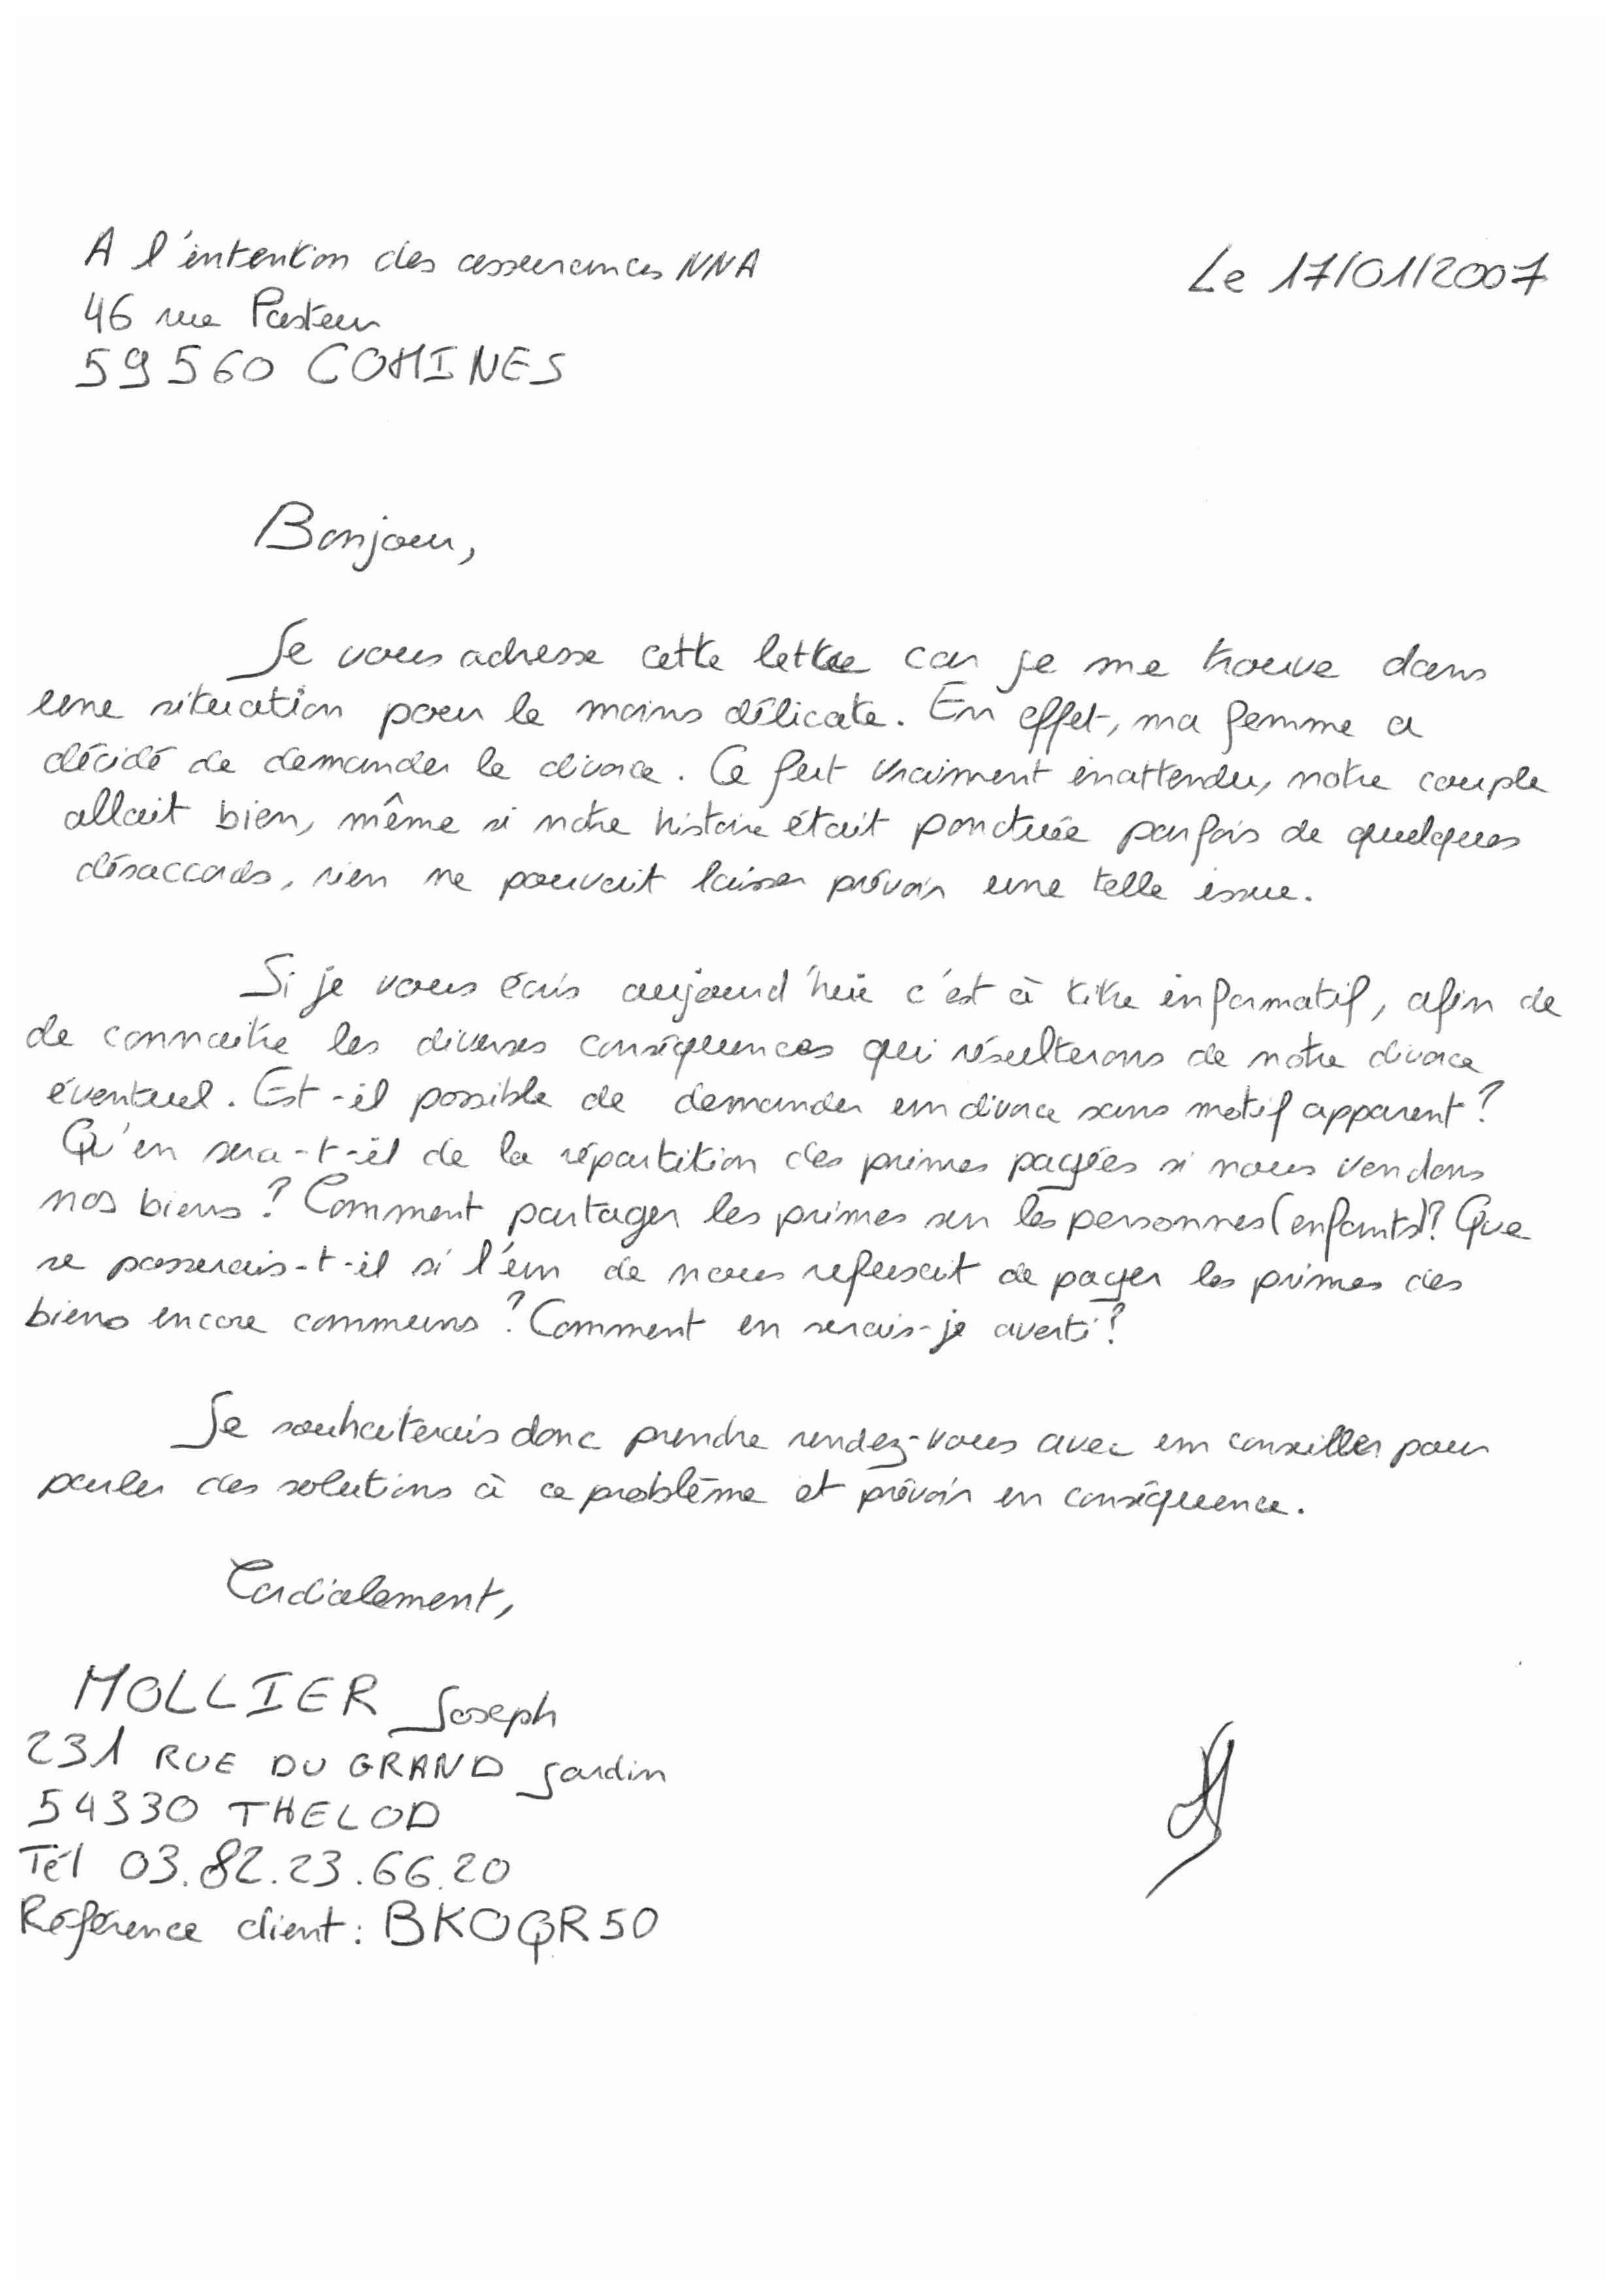 A l'intention des assurances NNA
Le 17/01/2007
46 rue Pasteur
59560 COMINES
Bonjour,
Je vous adresse cette lettre car je me trouve dans
une situation pour le moins délicate. En effet, ma femme a
décidé de demander le divorce. Ce fut vraiment inattendu, notre couple
allait bien, même si notre histoire était ponctuée parfois de quelques
désaccords, rien ne pouvait laisser prévoir une telle issue.
Si je vous écris aujourd'hui c'est à titre informatif, afin de
de connaitre les diverses conséquences qui résulterons de notre divorce
éventuel. Est-il possible de demander un divorce sans motif apparent?
Qu'en sera-t-il de la répartition des primes payées si nous vendons
nos biens? Comment partager les primes sur les personnes (enfants)? Que
se passerais-t-il si l'un de nous refusait de payer les primes des
biens encore communs? Comment en serais-je averti?
Je souhaiterais donc prendre rendez-vous avec un conseiller pour
parler des solutions à ce problème et prévoir en conséquence.
Cordialement,
MOLLIER Joseph
231 RUE DU GRAND Jardin
54330 THELOD
Tél 03.82.23.66.20
Référence client: BKOQR50